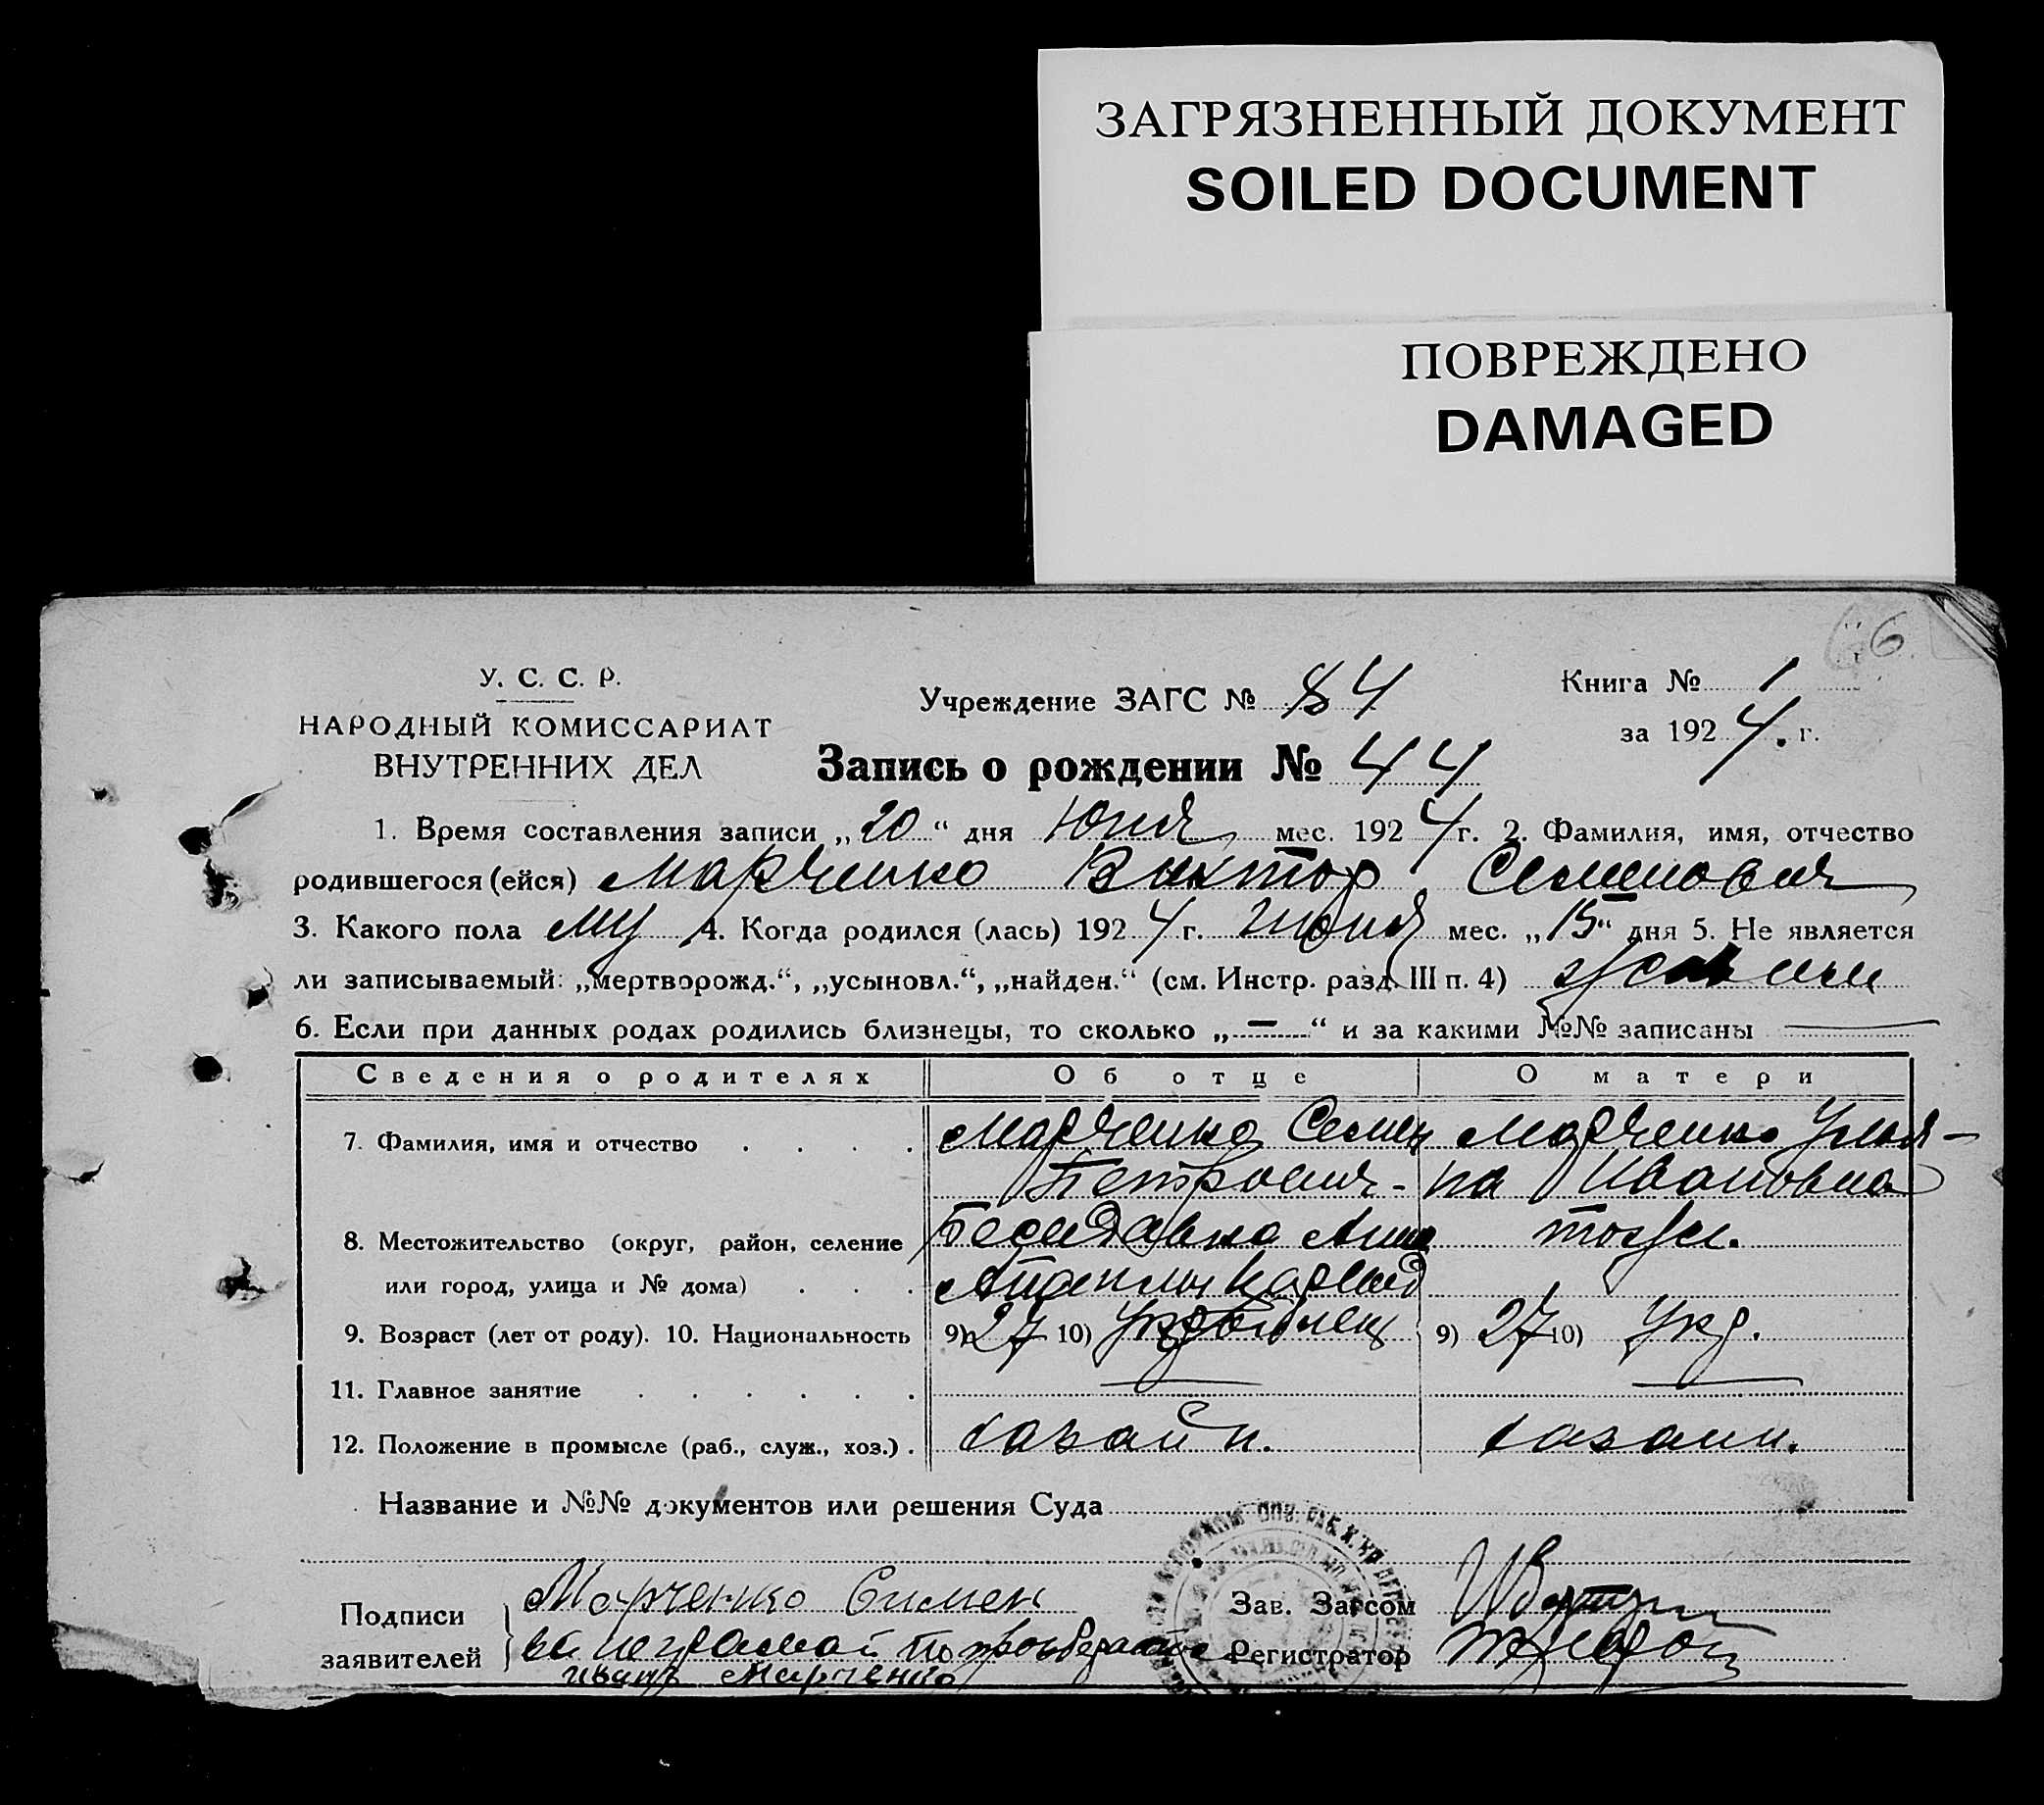 ЗАГРЯЗНЕННЫЙ ДОКУМЕНТ
SOILED DOCUMENT
ПОВРЕЖДЕНО
DAMAGED
66.
У. С. С. Р.
НАРОДНЫЙ КОМИССАРИАТ
ВНУТРЕННИХ ДЕЛ
Учреждение ЗАГС № 84
Книга № 1
за 1924. г.
Запись о рождении № 44
1. Время составления записи „20“ дня Юня мес. 1924 г. 2. Фамилия, имя, отчество
родившегося (ейся) Марченко Виктор Семенович
3. Какого пола му 4. Когда родился (лась) 1924 г. Июня мес. „15“ дня 5. Не является
ли записываемый: „мертворожд.“, „усыновл.“, „найден.“ (см. Инстр. разд. III п. 4)
6. Если при данных родах родились близнецы, то сколько „—“ и за какими №№ записаны —
Сведения о родителях Об отце О матери
7. Фамилия, имя и отчество Марченко Семен Марченко Улья-
Петрович - на Ивановна
8. Местожительство (округ, район, селение
или город, улица и № дома)
9. Возраст (лет от роду). 10. Национальность 9) 27 10) 9) 27 10) Укр.
11. Главное занятие — —
12. Положение в промысле (раб., служ., хоз.).
Название и №№ документов или решения Суда
Подписи Марченко Симен Зав. Загсом
заявителей Регистратор
Марченко